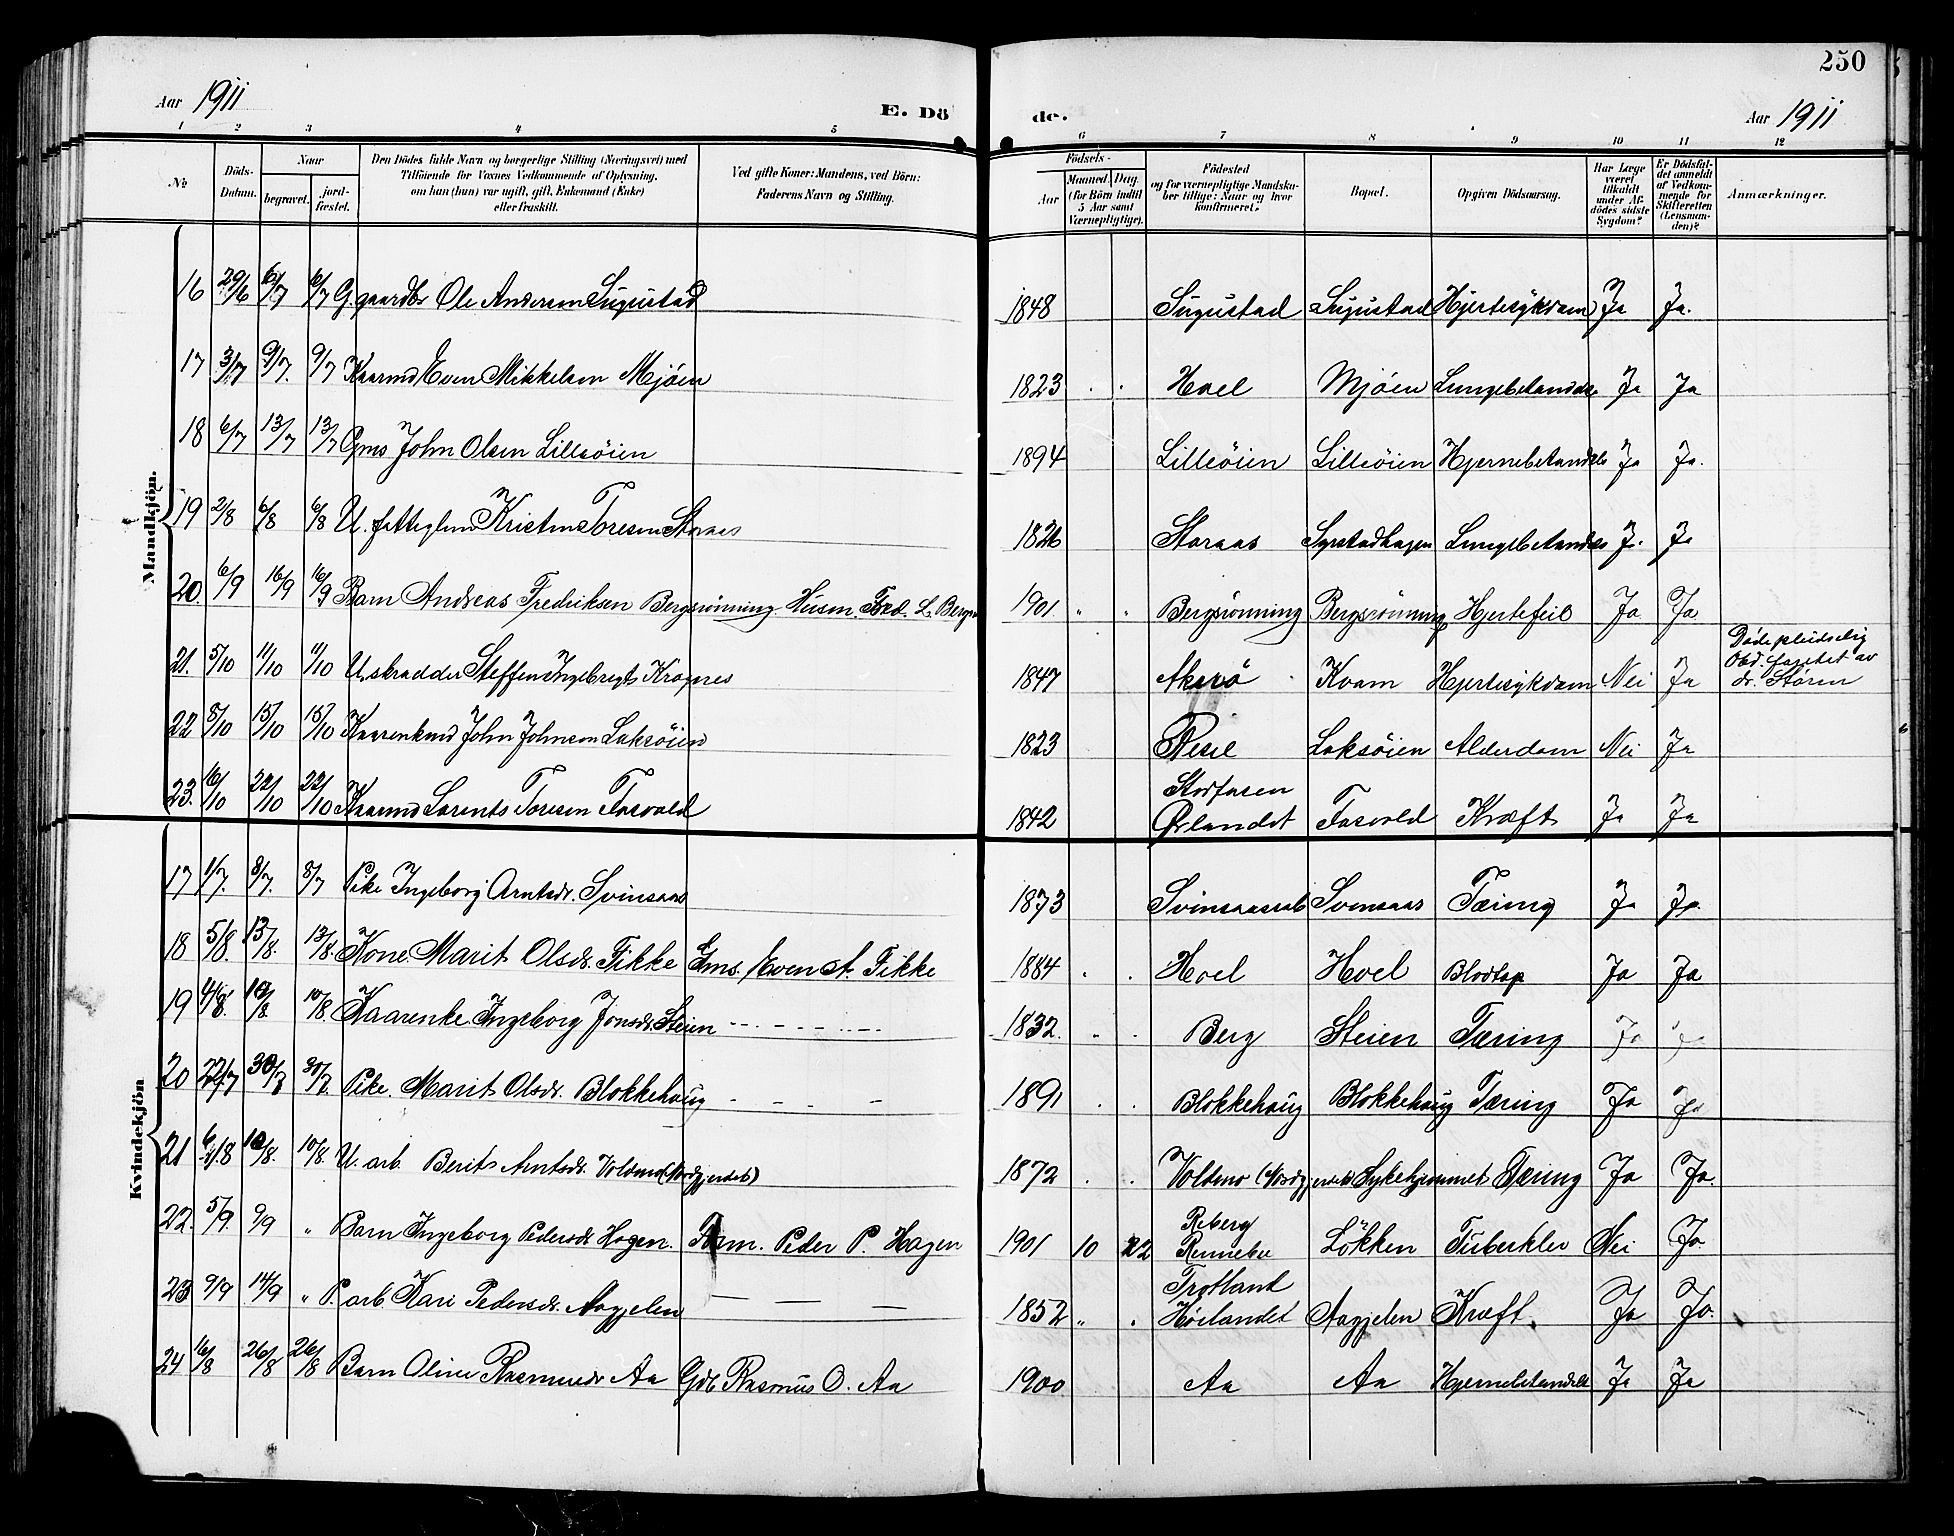 250
Aar 1911
E. Dö
de.
Aar 1911
1 2 3 4 5 6 7 8 9 10 11 12
No
Döds-Datum.
Naar
begravet.
jord-fæstet.
Den Dödes fulde Navn og borgerlige Stilling (Næringsvei) med
Tilföiende for Voxnes Vedkommende af Oplysning,
om han (hun) var ugift, gift, Enkemand (Enke)
eller fraskilt.
Ved gifte Koner: Mandens, ved Börn:
Faderens Navn og Stilling.
Födsels-
Aar
Maaned. Dag.
(for Börn indtil
5 Aar samt
Værnepligtige).
Födested
og for værnepligtige Mandska-
ber tillige: Naar og hvor
konfirmeret.
Bopæl.
Opgiven Dödsaarsag.
Har Læge
været
tilkaldt
under Af-
dödes sidste
Sygdom?
Er Dödsfal-
det anmeldt
af Vedkom-
mende for
Skifteretten
(Lensman-
den)?
Anmærkninger.
Mandkjön.
16 29/6 6/7 6/7 G. gaardbr Ole Andersen Sugustad 1848 Sugustad Sugustad Hjertesykdom Ja Ja.
17 3/7 9/7. 9/7 Kaarmd Even Mikkelsen Mjöen 1823 Hoel Mjöen Lungebetændelse Ja Ja
18 6/7 13/7 13/7 Gms John Olsen Lilleöien 1894 Lilleöien Lilleöien Hjernebetændelse Ja Ja.
19 2/8 6/8 6/8 U. fattiglem Kristen Toresen Storaas 1826 Storaas Syrstadhagen Lungebetændelse Ja. Ja
20. 6/9 16/9 16/9 Barn Andreas Fredriksen Bergsrönning Husm. Fred. L. Bergsr 1901 " " Bergsrönning Bergsrönning Hjertefeil Ja Ja
21. 5/10 11/10 11/10 U. skrædder Steffen Ingebrigts Krognes 1847 Akerö Kvam Hjertesykdom Nei Ja Döde pludselig
Obd. foretat av
dr. Stören
22 8/10 15/10 15/10 Kaarenkmd John Johnsen Laksöien 1823 Resse Laksöien Alderdom Nei Ja
23. 16/10 22/10 22/10 Kaarmd Lorents Toresen Fosvold 1842 Storfosen
Ørlandet Fosvold Kræft Ja Ja
Kvindekjön
17 1/7. 8/7. 8/7 Pike Ingeborg Arntsdr. Svinsaas 1873 Svinsaas Tæring Ja Ja.
18 5/8. 13/8. 13/8. Kone Marit Olsdr. Fikke Gms. Even A. Fikke 1884 Hoel Hoel Blodtap Ja Ja
19 4/8. 10/8. 10/8. Kaarenke Ingeborg Jonsdr. Steien 1832. Berg Steien Tæring Ja Ja
20 22/7 30/7 30/7. Pike Marit Olsdr. Blokkehaug 1891 Blokkehaug Blokkehaug Tæring Ja Ja
21 6/8 10/8. 10/8. U. arb. Berit Arntsdr. Voldmo (Nordgjerdet) 1872 Voldmo (Nordgjerdet) Sykehjemmet Tæring Ja Ja.
22. 5/9. 9/9 " Barn Ingeborg Pedersdr Hagen. Peder P. Hagen 1901 10 22 Reberg
Rennebu Lökken Tuberkler Nei Ja
23 9/9 14/9 " P. arb Kari Pedersdr. Aagjelen 1852 " Trotland
Höilandet Aagjelen Kræft. Ja Ja.
24 16/8 26/8 26/8 Barn Oline Rasmusdr Aa Gdb Rasmus O. Aa 1900 Aa Aa Hjernebetændelse Ja Ja